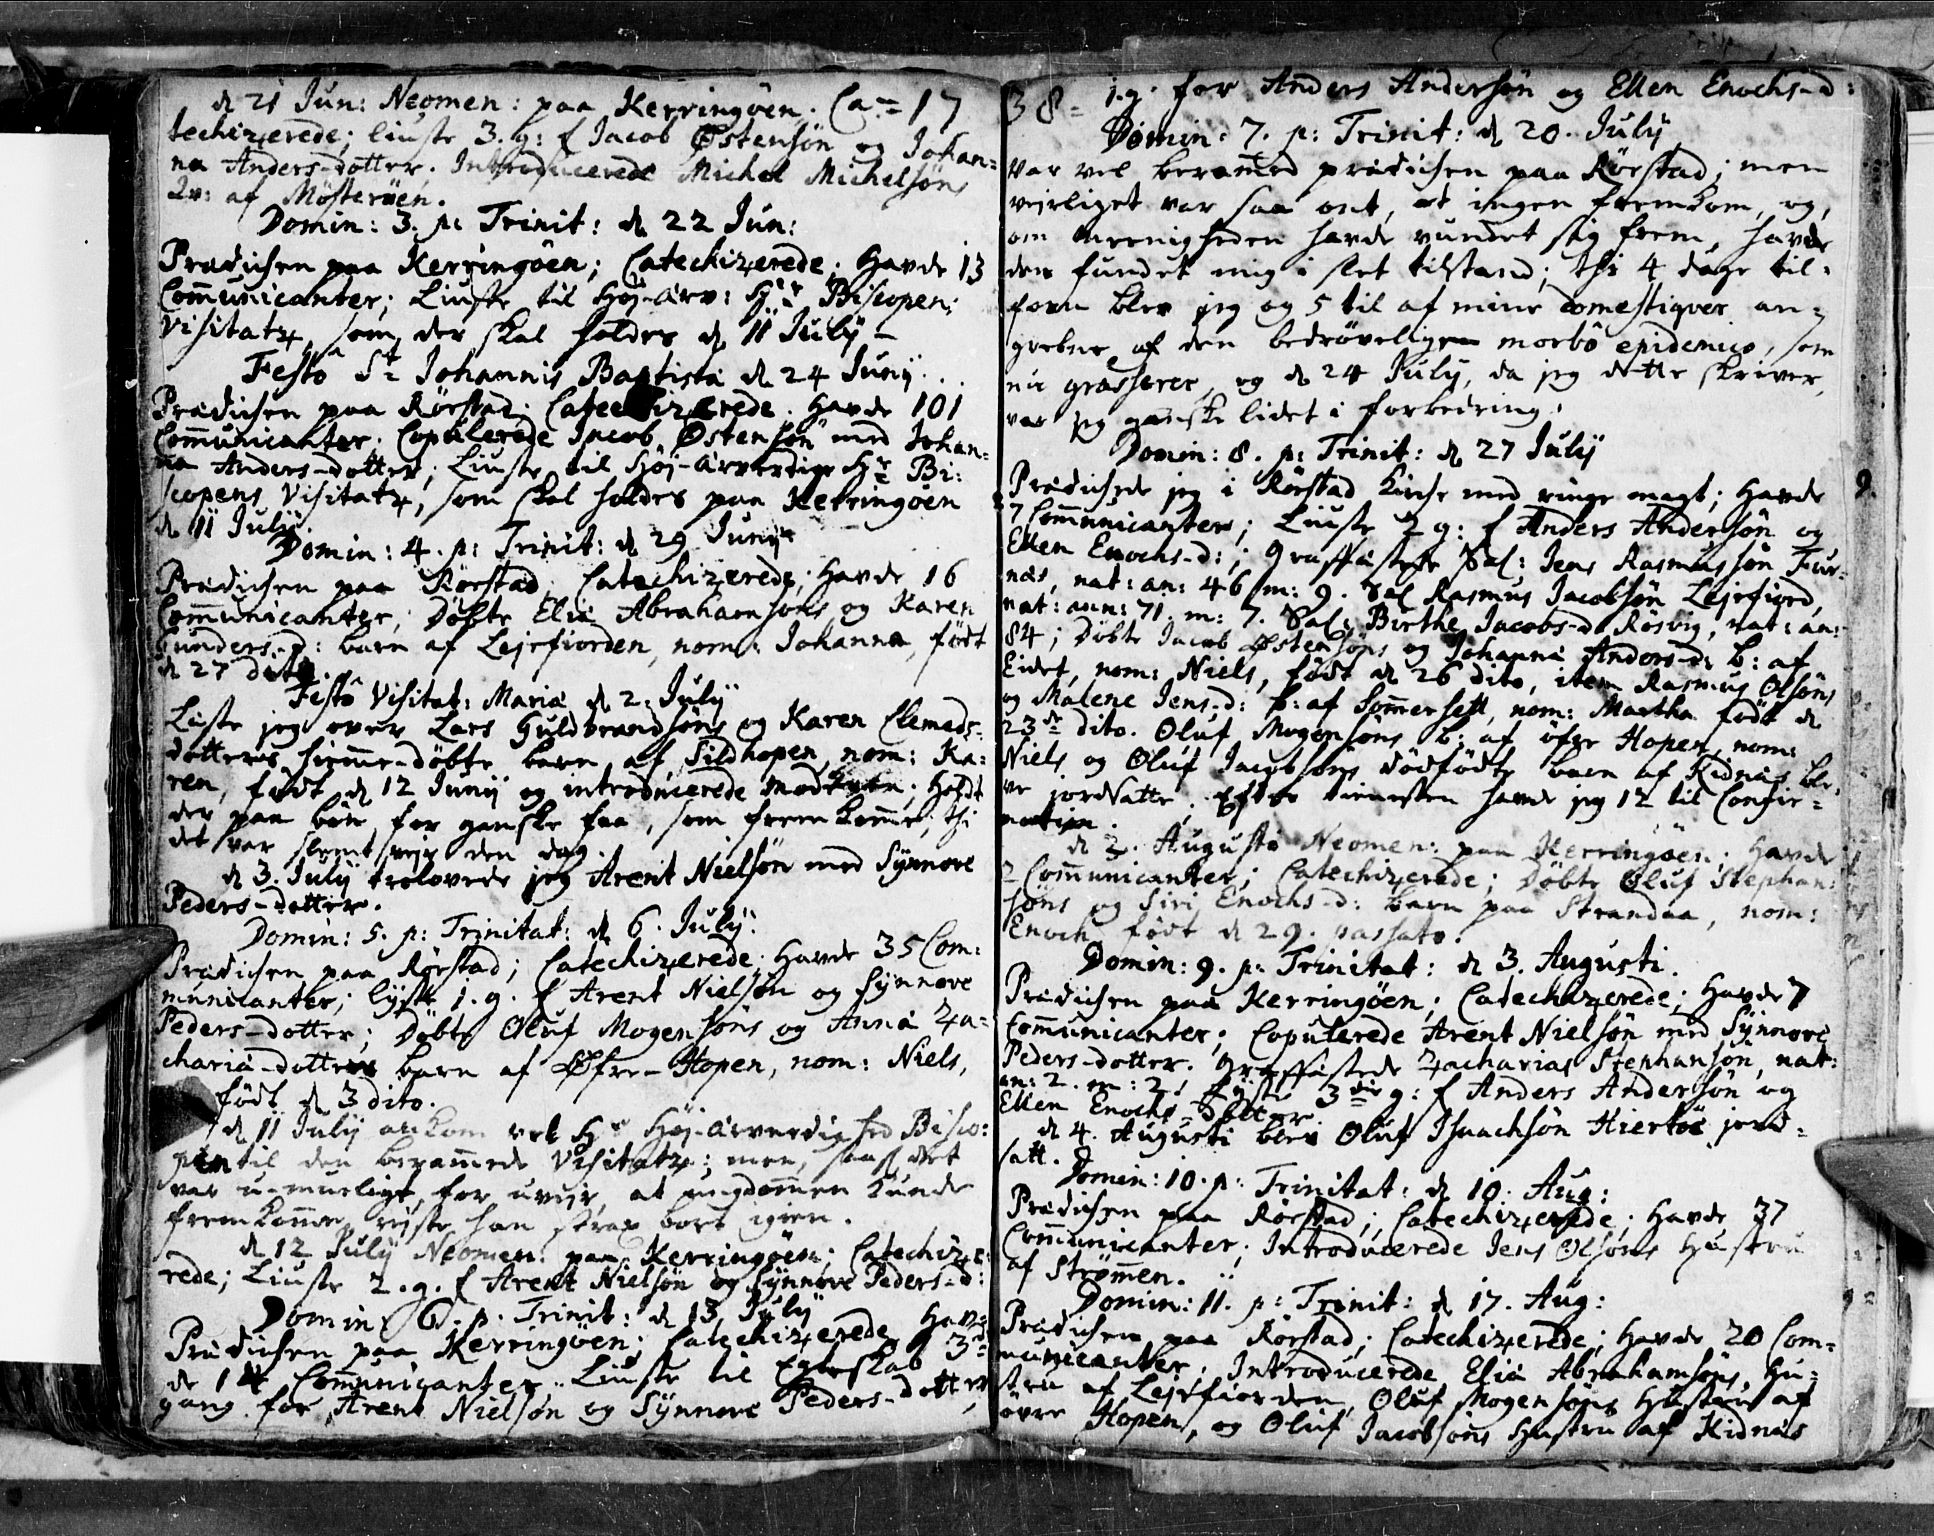 d 21 Jun: Neomen: paa Kerringöen. Ca= 17
techizerede; liuste 3. g: f Jacob Østensön og Johan=
na Anders-dotter. Introducerede Michel Michelsöns
Qv: af Mösteröen.
Domin: 3. p: Trinit: d 22 Jun:
Prædichen paa Kerringöen; Catechizerede. Havde 13
Communicanter; Liuste til Höj-ærv: Hr Biscopens
Visitatz, som der skal holdes d 11 July
Festô St Johannis Baptistæ d 24 Junÿ.
Prædichen paa Rörstad. Catechizerede. Havde 101
Communicanter. Copulerede Jacob Østensön med Johan=
na Anders-dotter; Liuste til Höj-ærverdige Hr Bi=
scopens Visitatz, som skal holdes paa Kerringöen
d 11 July.
Domin: 4. p: Trinit: d 29 Junÿ
Prædichen paa Rörstad. Catechizerede; Havde 16
Communicanter; Döbte Eliæ Abrahamsöns og Karen
Gunders-d: barn af Lejrfiorden, nom: Johanna, födt
d 27 dito.
Festô Visitat: Mariæ d 2. July
Läste jeg over Lars Guldbrandsöns og Karen Clemeds=
dotters hiemme-döbte barn af Sildhopen, nom: Ka=
ren, födt d 12 Junÿ og introducerede Moderen; Holdt
der paa bön for ganske faa, som fremkomme; thi
det var slemt vejr den dag.
d 3. July trolovede jeg Arent Nielsön med Synnove
Peders-dotter.
Domin: 5. p: Trinitat: d 6. July.
Prædichen paa Rörstad; Catechizerede. Havde 35 Com=
municanter; lyste 1. g. f Arent Nielsön og Synnove
Peders-dotter; Döbte Oluf Mogensöns og Anna Za=
chariæ-dotters barn af Øfre-Hopen, nom: Niels,
födt d 3 dito.
d 11 July ankom vel Hr Höj-ærverdighed Bisco=
pen til den beramede Visitatz; men, saasom det
var u-mueligt for uvejr, at ungdommen kunde
fremkomme, rejste han strax bort igien.
d 12 July Neomen: paa Kerringöen; Catechize=
rede; Liuste 2. g. f Arent Nielsön og Synnove Peders-d:
Domin: 6. p. Trinit: d 13 July
Prædichen paa Kerringöen; Catechizerede. Hav=
de 14 Communicanter. Liuste til Egteskab 3de
gang for Arent Nielsön og Synnove Peders-dotter,
38= 1. g. for Anders Andersön og Ellen Enochs-d:
Domin: 7. p: Trinit: d 20. July
Var vel beramed prædichen paa Rörstad; men
vejrliget var saa ont, at ingen fremkom, og,
om menigheden havde vundet sig frem, havde
den fundet mig i slet tilstand; thi 4 dage til=
forn blev jeg og 5 til af mine domestiqver an=
grebne af den bedröveligen morbô epidemico, som
nu grasserer, og d 24 July, da jeg dette skriver,
var jeg ganske lidet i forbedring.
Domin: 8. p: Trinit: d 27 July
Prædichede jeg i Rörstad kirche med ringe magt; Havde
7 Communicanter; Liuste 2 g: f Anders Andersön og
Ellen Enochs-d:; Graffästede Sal: Jens Rasmussön Fur=
næs, nat: an: 46 m: 9. Sal Rasmus Jacobsön Lejrfiord,
nat: ann: 71, m: 7. Sal: Birthe Jacobs-d Rösvig, nat: an:
84; Döbte Jacob Østensöns og Johanna Anders-d: b: af
Eidet, nom: Niels, födt d 26 dito, item Rasmus Olsöns
og Malene Jens-d: b: af Sommersett, nom: Martha födt d
23de dito. Oluf Mogensöns b: af öfre Hopen, nom:
Niels og Oluf Jacobsöns dödfödte barn af Kidnæs ble=
ve jordsatte. Efter tienesten havde jeg 12 til Confir=
mation.
d 2. Augusti Neomen: paa Kerringöen. Havde
2 Communicanter; Catechizerede; Döbte Oluf Stephan=
söns og Siri Enochs-d: barn paa Strandaa, nom:
Enoch födt d 29. passato.
Domin: 9. p: Trinitat: d 3. Augusti.
Prædichen paa Kerringöen; Catechizerede; Havde 7
Communicanter; Copulerede Arent Nielsön med Synnove
Peders-dotter. Graffästede Zacharias Stephansön, nat:
an: 2. m: 2. Lyste 3die g: f Anders Andersön og
Ellen Enochs-dotter
d 4. Augusti blev Oluf Isaachsön Hiertöe jord=
satt.
Domin: 10. p: Trinitat: d 10. Aug:
Prædichen paa Rörstad; Catechizerede. Havde 37
Communicanter; Introducerede Jens Olsöns Hustru
af Strömmen.
Domin: 11. p: Trinit: d 17. Aug:
Prædichen paa Rörstad; Catechizerede; Havde 20 Com=
municanter. Introducerede Eliæ Abrahamsöns, Hu=
stru af Lejrfiorden, Oluf Mogensöns Hustru af
övre Hopen, og Oluf Jacobsöns Hustru af Kidnæs